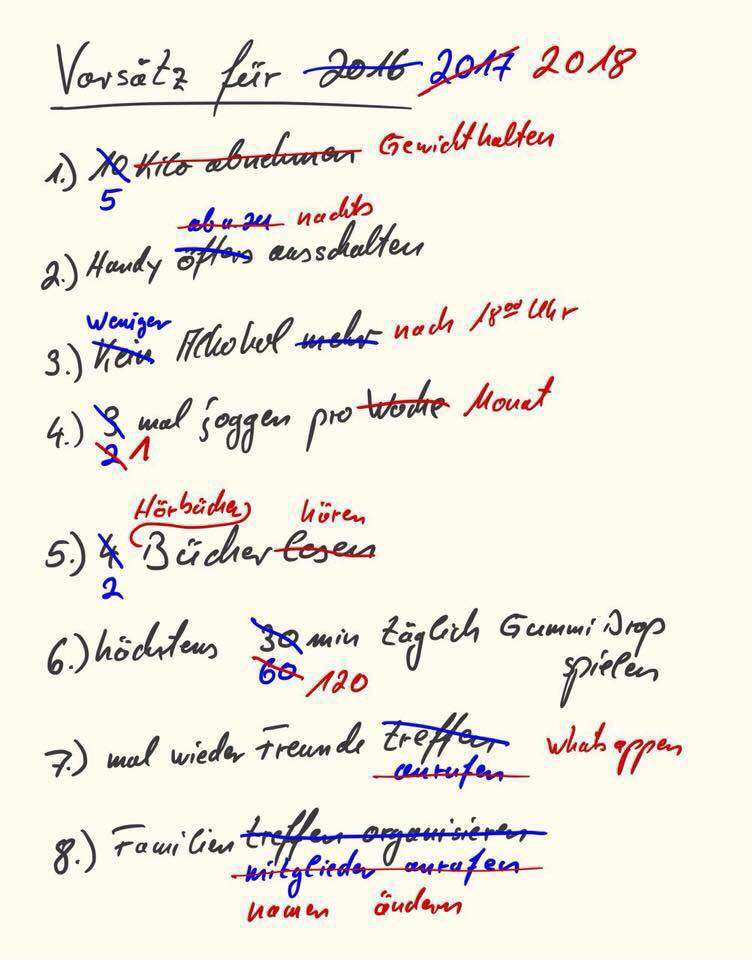 Vorsätz für 2016 2017 2018
1.) 10 Kilo abnehmen Gewicht halten
5
ab u. zu nachts
2.) Handy öfters ausschalten
Weniger
3.) Kein Alkohol mehr nach 18⁰⁰ Uhr
4.) 3 mal joggen pro Woche Monat
2 1
Hörbücher hören
5.) 4 Bücher lesen
2
6.) höchstens 30 min täglich Gummi Drop
60 120 spielen
7.) mal wieder Freunde treffen whatsappen
anrufen
8.) Familien treffen organisieren
mitglieder anrufen
namen ändern